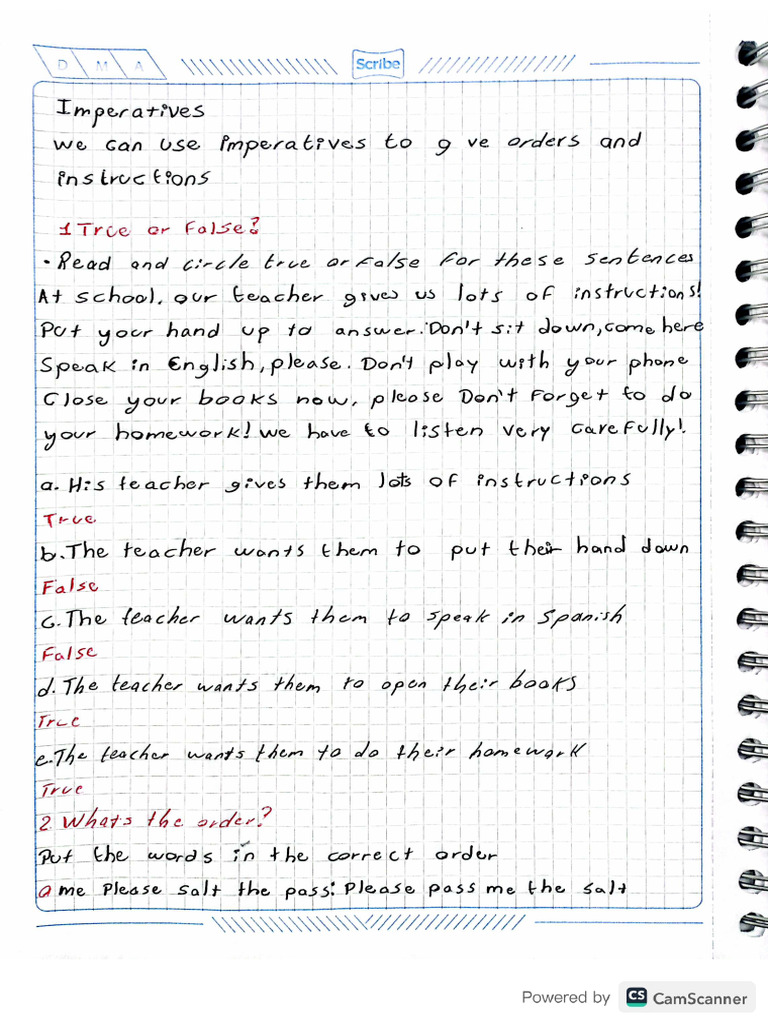 D M A
Scribe
Imperatives
we can use imperatives to g ve orders and
instructions
1 True or False?
• Read and circle true or False for these sentences
At school, our teacher gives us lots of instructions!
Put your hand up to answer. Don't sit down, come here
Speak in English, please. Don't play with your phone
Close your books now, please Don't Forget to do
your homework! we have to listen very carefully!
a. His teacher gives them lots of instructions
True
b. The teacher wants them to put their hand down
False
c. The teacher wants them to speak in Spanish
False
d. The teacher wants them to open their books
True
e. The teacher wants them to do their homework
True
2. Whats the order?
Put the words in the correct order
a me Please salt the pass: Please pass me the salt
Powered by CS CamScanner